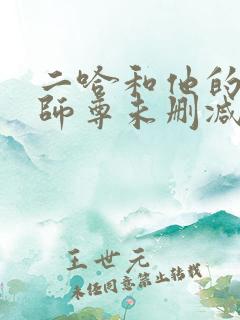 二哈和他的
師尊未刪减
王世元
未经同意禁止转载